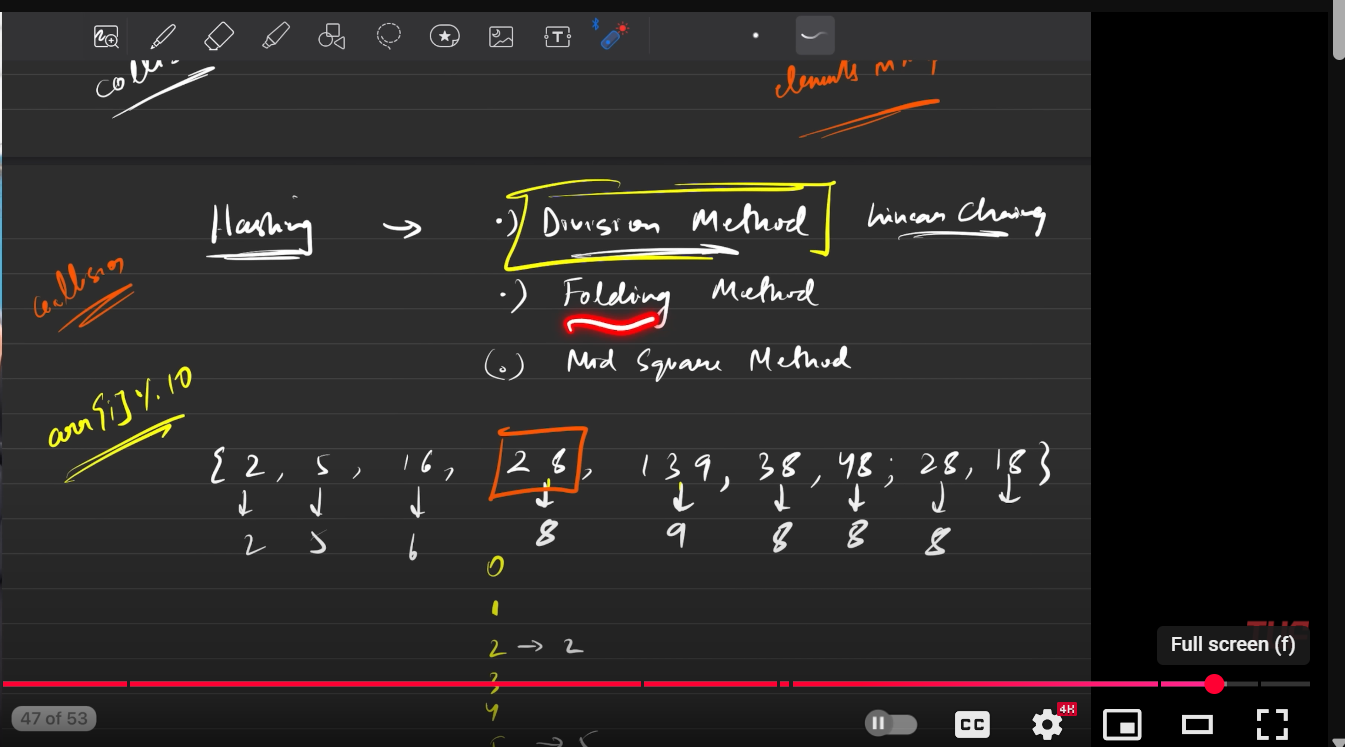 elements m
Hashing → .) Division Method Linear Chaining
collision
.) Folding Method
(.) Mid Square Method
arr[i] % 10
{ 2, 5, 16, 28, 139, 38, 48; 28, 18 }
↓ ↓ ↓ ↓ ↓ ↓ ↓ ↓ ↓
2 5 6 8 9 8 8 8
0
1
2 → 2
3
4
5 → 5
Full screen (f)
47 of 53
CC
4K